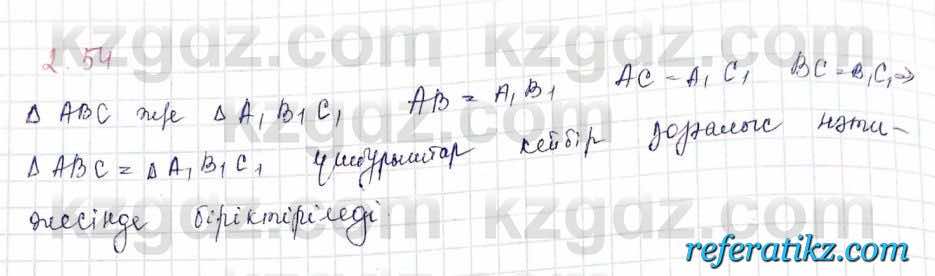 2.54
Δ ABC және Δ A₁B₁C₁ AB = A₁B₁ AC = A₁C₁ BC = B₁C₁ ⇒
Δ ABC = Δ A₁B₁C₁ үшбұрыштар кейбір қозғалыс нәти-
жесінде біріктіріледі
kzgdz.com kzgdz.com
kzgdz.com kzgdz.com
kzgdz.com kzgdz.com
referatikz.com